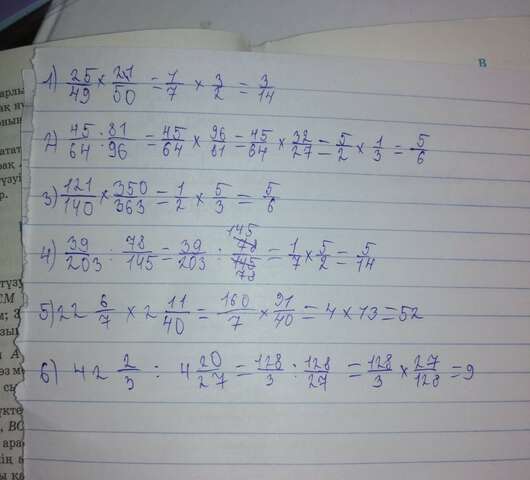 В
1) 25/49 × 21/50 = 1/7 × 3/2 = 3/14
2) 45/64 : 81/96 = 45/64 × 96/81 = 45/64 × 32/27 = 5/2 × 1/3 = 5/6
3) 121/140 × 350/363 = 1/2 × 5/3 = 5/6
4) 39/203 : 78/145 = 39/203 : 145/78 = 1/7 × 5/2 = 5/14
5) 22 6/7 × 2 11/40 = 160/7 × 91/40 = 4 × 13 = 52
6) 42 2/3 : 4 20/27 = 128/3 : 128/27 = 128/3 × 27/128 = 9